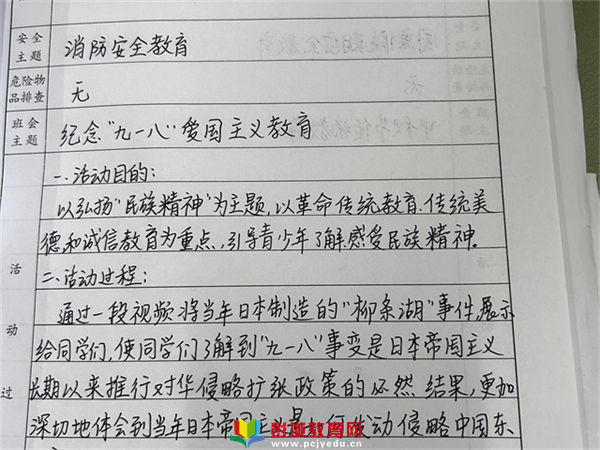 安全主题 消防安全教育
危险物品排查 无
班会主题 纪念“九一八”爱国主义教育
一.活动目的:
以弘扬“民族精神”为主题,以革命传统教育.传统美
德和诚信教育为重点,引导青少年了解感受民族精神.
二.活动过程:
通过一段视频将当年日本制造的“柳条湖”事件,展示
给同学们,使同学们了解到“九一八”事变是日本帝国主义
长期以来推行对华侵略扩张政策的必然结果,更加
深切地体会到当年日本帝国主义是如何发动侵略中国东
活动过
www.pcjyedu.cn